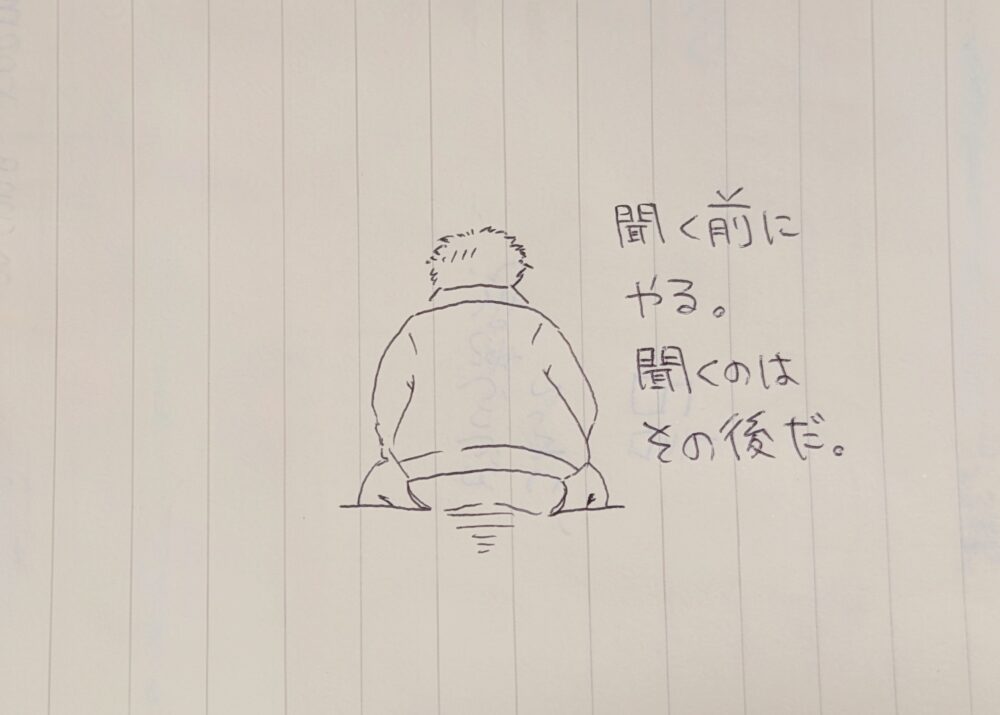 聞く前に
やる。
聞くのは
その後だ。